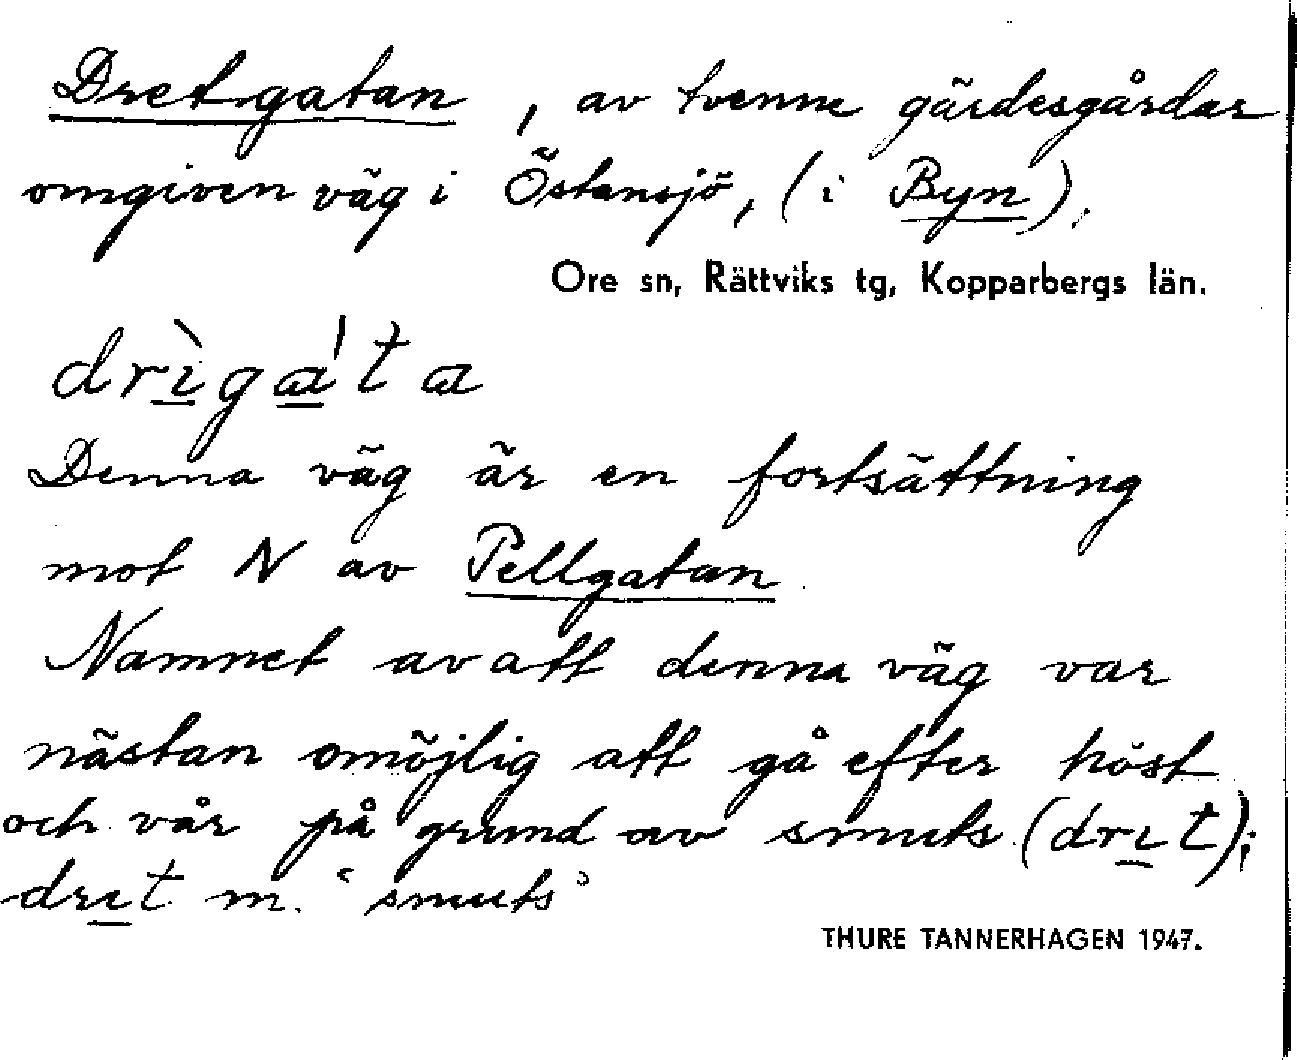 Dretgatan, av tvenne gärdesgårdar
omgiven väg i Östansjö, (i Byn).
Ore sn, Rättviks tg, Kopparbergs län.
drìga̍ta
Denna väg är en fortsättning
mot N av Pellgatan
Namnet av att denna väg var
nästan omöjlig att gå efter höst
och vår på grund av smuts (drıt);
dret m. "smuts"
THURE TANNERHAGEN 1947.